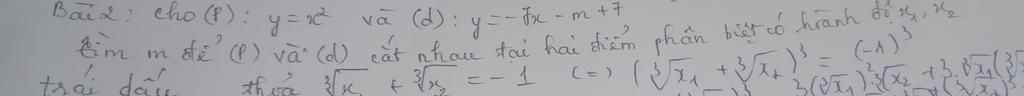 Bài 2: cho (P): y = x² và (d): y = -7x - m + 7
tìm m để (P) và (d) cắt nhau tại hai điểm phân biệt có hoành độ x₁, x₂
trái dấu thỏa ∛x₁ + ∛x₂ = -1 (=) (∛x₁ + ∛x₂)³ = (-1)³